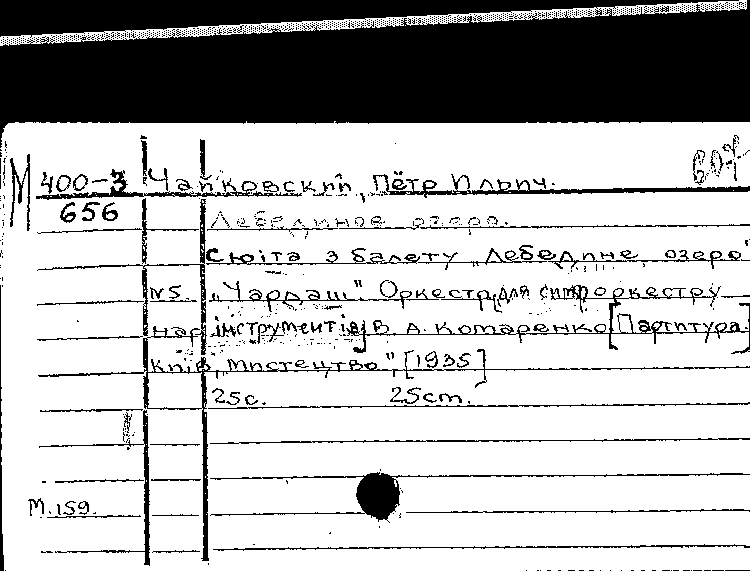 607
М 400-3 Чайковский, Пётр Ильич.
656
Лебединое озеро.
Сюїта з балету „Лебедине озеро"
№5. „Чардаш". Оркестр. для симф оркестру
нар. інструментів] В. А. Комаренко [Партитура]
Київ, „Мистецтво", [1935]
25с. 25cm.
М.159.